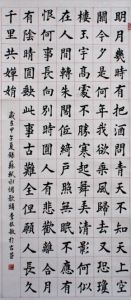 明月幾時有把酒問青天不知天上宮
闕今夕是何年我欲乘風歸去又恐瓊
樓玉宇高處不勝寒起舞弄清影何似
在人間轉朱閣低綺戶照無眠不應有
恨何事長向別時圓人有悲歡離合月
有陰晴圓缺此事古難全但願人長久
千里共嬋娟
歲在甲午夏錄蘇軾水調歌頭